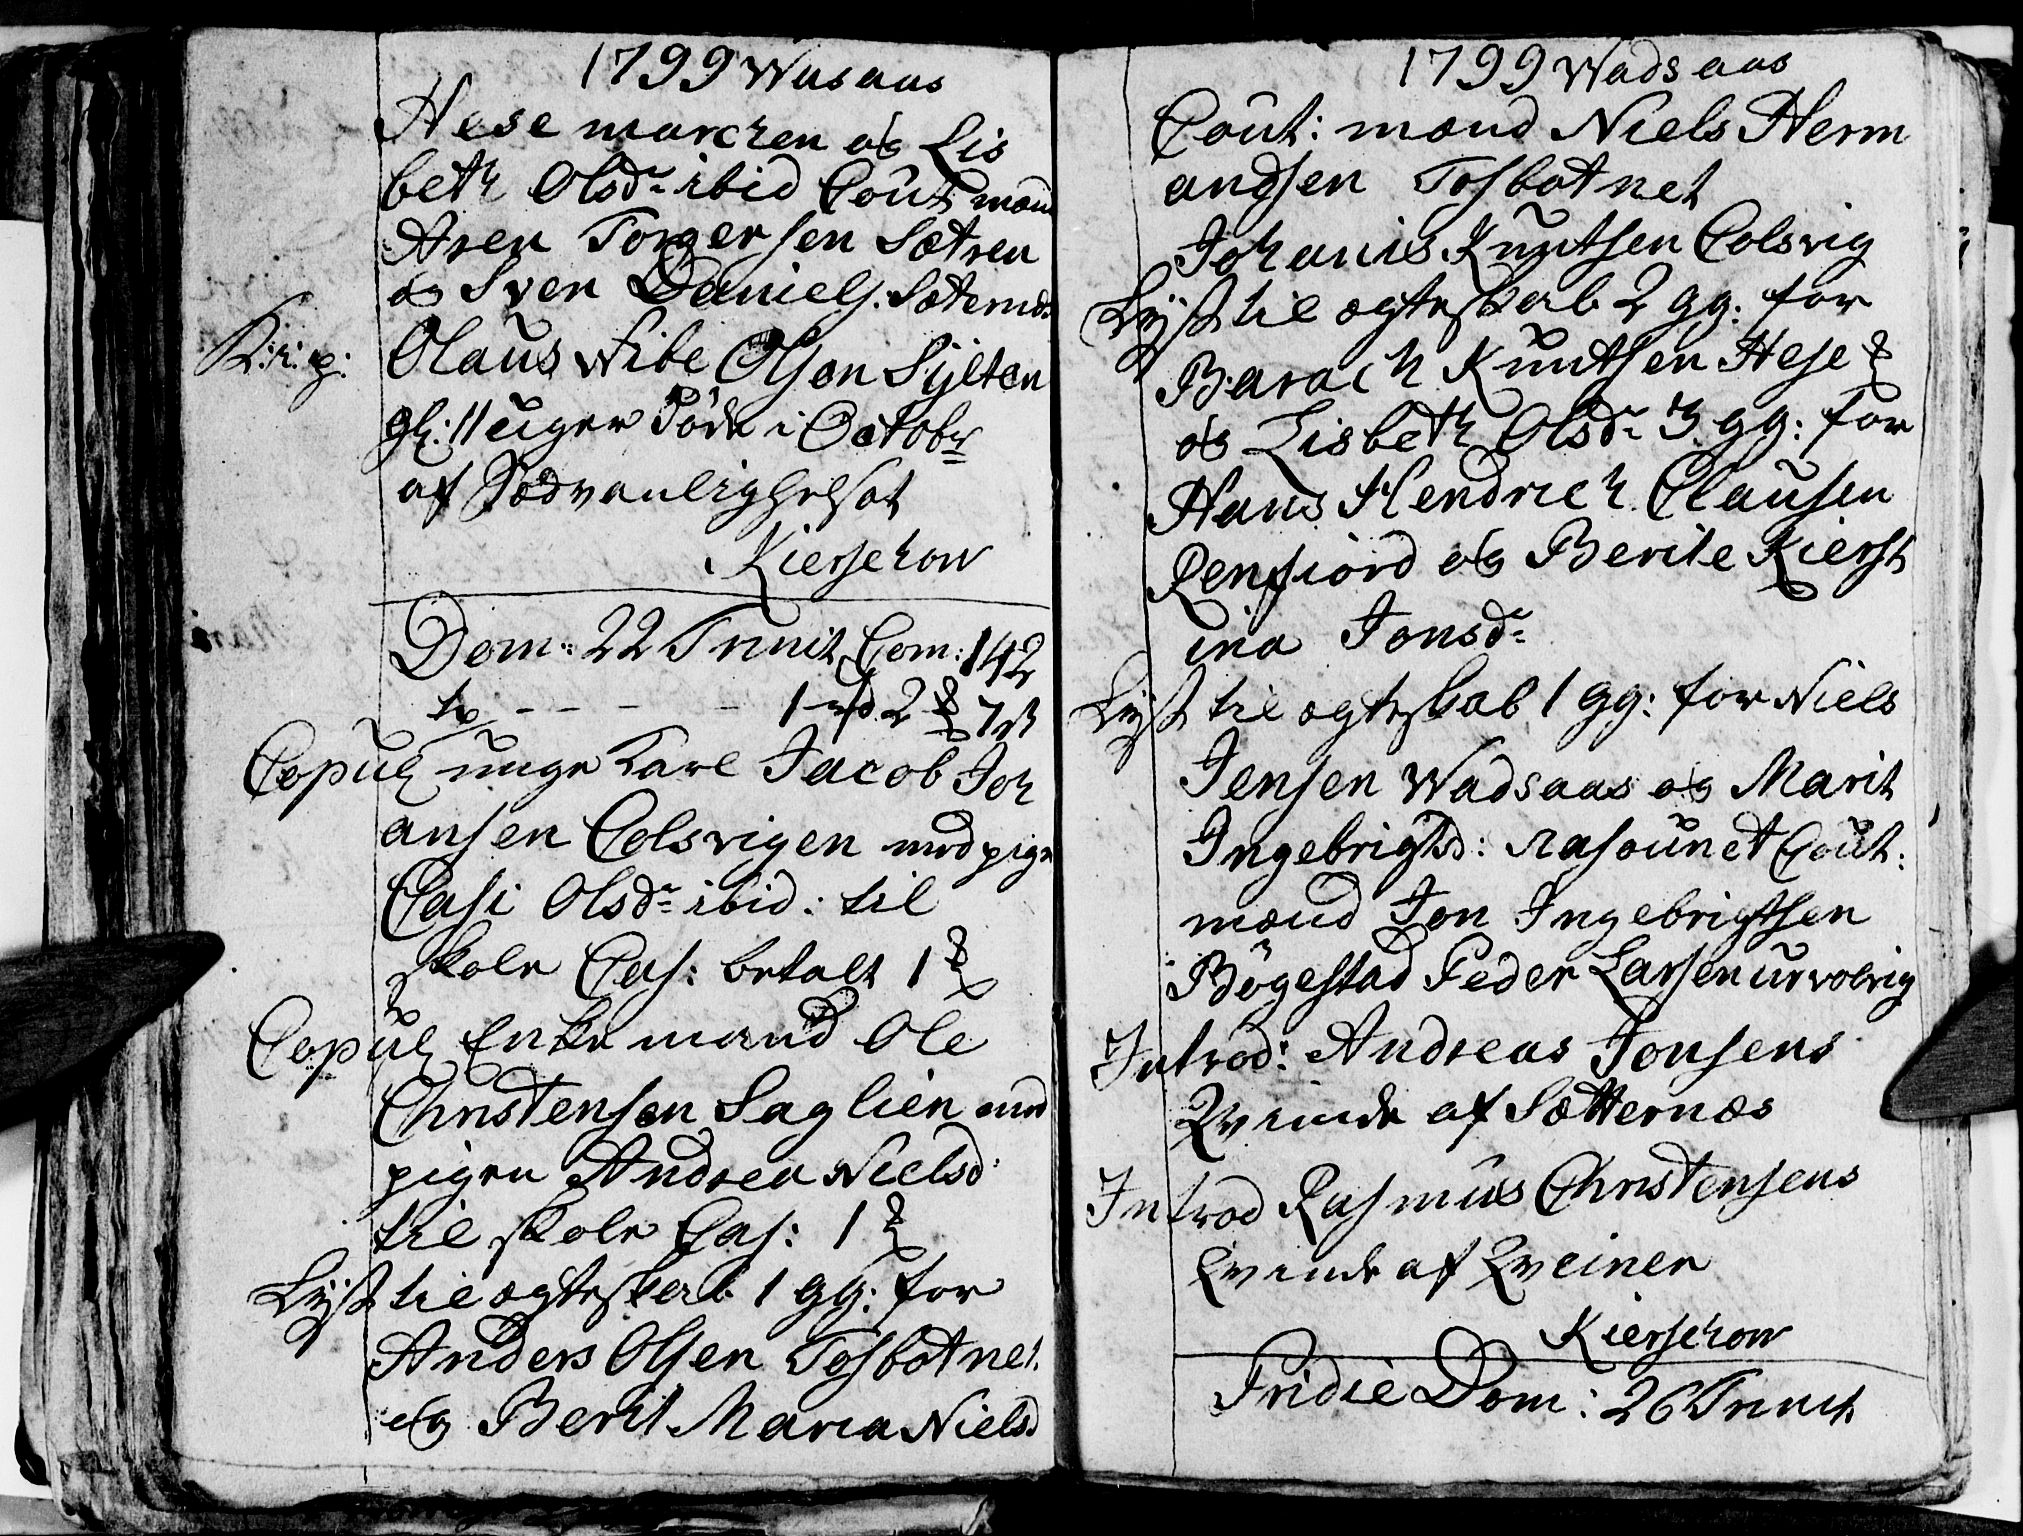 1799 Wusaas
Hese marchen og Lis
beth Olsdr ibid Cout: mænd
Aren Torgersen Sætren
og Sven Daniels. Sæternæs
K: i: g: Olaus Wibe Olsen Sÿlten
gl: 11 uger Död i Octobr
af Sædvanlighedsot
Kierschow
Dom: 22 Trinit Com: 142
Copul unge Karl Jacob Joh
ansen Colsvigen med pige
Casi Olsdr ibid: til
skole Cas: betalt 1
Copul Enke mand Ole
Christensen Saglien med
pigen Andrea Nielsd:
til skole Cas: 1
Lÿst til ægteskab 1 gg: for
Anders Olsen Tosbotnet
og Berit Maria Nielsd
1799 Wadsaas
Cout: mænd Niels Herm
andsen Tosbotnet
Johanis Knutsen Colsvig
Lÿst til ægteskab 2 gg: for
Barach Knutsen Hese
og Lisbeth Olsdr 3 gg: for
Hans Hendrich Clausen
Lensfiord og Berite Kierst
ina Jonsdr
Lÿst til ægteskab 1 gg: for Niels
Jensen Wadsaas og Marit
Ingebrigtsd: Nasounet Cout:
mænd Jon Ingebrigtsen
Bögestad Peder Larsen urvolvig
Introd: Andreas Jonsens
Qvinde af Sætternæs
Introd Rasmus Christensens
Qvinde af Qveinen
Kierschow
Pridie Dom: 26 Trinit